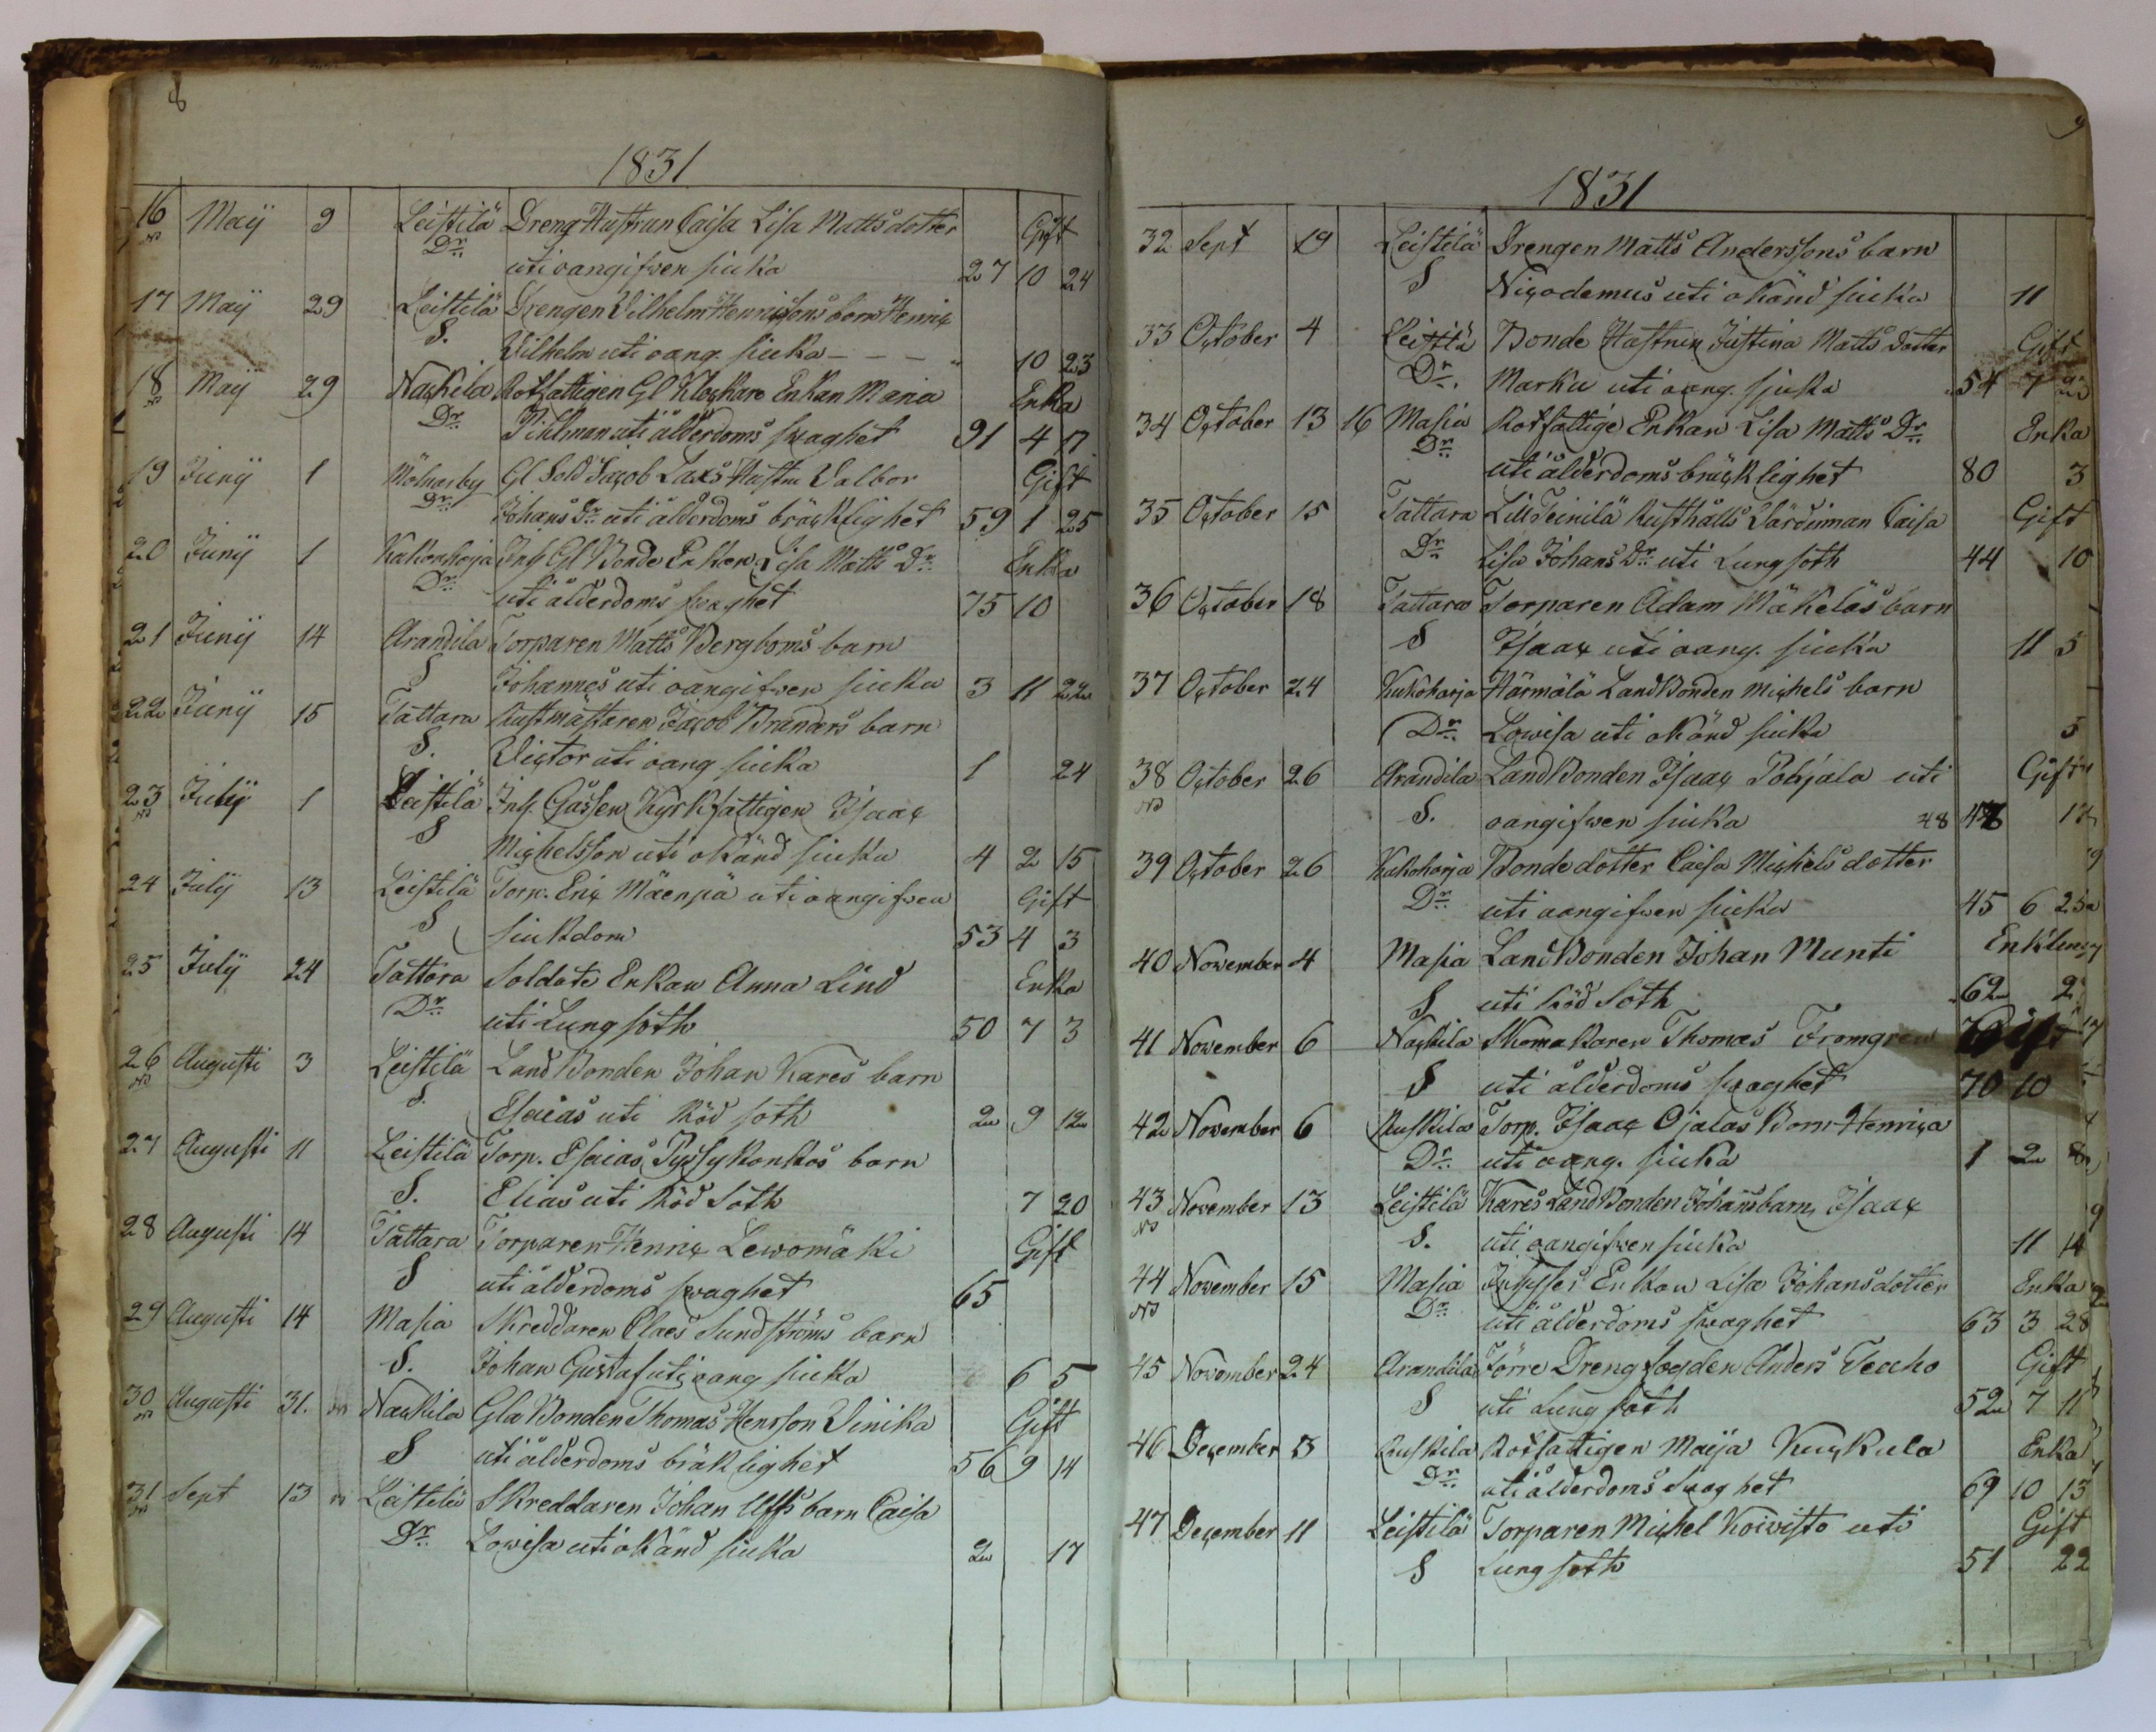 8
1831
16 Maij 9 Leistilä Dreng Hustrun Caisa Lisa Mattsdotter Gift
Dr uti oangifven siuka 27 10 24
17 Maij 29 Leistilä Drengen Vilhelm Henricssons barn Henric
S. Vilhelm uti oang. siuka - - - " 10 23
18 Maij 29 Nackila Rotfattigen Gl Klockare Enkan Maria Enka
Dr Pihlman uti ålderdoms swaghet 91 4 17
19 Junij 1 Gl Sold Jacob Laxs Hustru Valbor Gift
Dr Johans Dr uti ålderdoms bräcklighet 59 1 25
20 Junij 1 Kukonharja Inh Gl Bonde Enkan Lisa Matts Dr Enka
Dr uti ålderdoms swaghet 75 10
21 Junij 14 Arandila Torparen Matts Bergboms barn
S Johannes uti oangifwen siuka 3 11 22
22 Junij 15 Tattara Rustmästaren Jacob Branders barn
S. Victor uti oang siuka 1 24
23 Julij 1 Leistilä Inh. Gossen Kyrkfattigen Isaac
S Michelsson uti okänd siuka 4 2 15
24 Julij 13 Leistilä Torp. Eric Mäenpä uti oangifwen Gift
S siukdom 53 4 3
25 Julij 24 Tattara Soldate Enkan Anna Lind Enka
Dr uti Lungsoth 50 7 3
26 Augusti 3 Leistilä Land Bonden Johan Kares barn
S. Esaias uti Röd soth 2 9 12
27 Augusti 11 Leistilä Torp. Esaias Pyssykonkos barn
S. Elias uti Röd Soth 7 20
28 Augusti 14 Tattara Torparen Henric Lewomäki Gift
S uti ålderdoms swaghet 65
29 Augusti 14 Masia Skreddaren Claes Sundströms barn
S. Johan Gustaf uti oang siuka 6 5
30 Augusti 31. Nackila Gla Bonden Thomas Henrsson Vinika Gift
S uti ålderdoms bräklighet 56 9 14
31 Sept 13 Leistilä Skreddaren Johan Ulffs barn Caisa
Dr Lowisa uti okänd siuka 2 17
9
1831
32 Sept 19 Leistilä Drengen Matts Anderssons barn
S Nicodemus uti okänd siuka 11
33 October 4 Leistilä Bonde Hustrun Justina Matts dotter Gift
Dr. Marku uti oang. sjuka 54 7
34 October 13 16 Masia Rotfattige Enkan Lisa Matts Dr Enka
Dr uti ålderdoms bräcklighet 80 3
35 October 15 Tattara Lill Teinilä Rusthålls Värdinnan Caisa Gift
Dr Lisa Johans Dr uti Lungsoth 44 10
36 October 18 Tattara Torparen Adam Mäkeläs barn
S Isaac uti oang. siuka 11 5
37 October 24 Kukoharja Härmälä Land Bonden Michels barn
Dr Lowisa uti okänd siuka 5
38 October 26 Arandila Land Bonden Isaac Pohjala uti Gift
S. oangifwen siuka 48 17
39 October 26 Kukoharja Bonde dotter Caisa Michels dotter
Dr uti oangifwen siuka 45 6 25
40 November 4 Masia Land Bonden Johan Munti Enkling
S uti Röd Soth 62 2
41 November 6 Nackila Skomakaren Thomas Fromgren Gift
S uti ålderdoms swaghet 70 10
42 November 6 Ruskila Torp. Isaac Ojalas Barn Henrica
Dr uti oang. siuka 1 2 8
43 November 13 Leistilä Kares Land Bonden Johans barn Isaac
S. uti oangifwen siuka 11 14
44 November 15 Masia Inhyses Enkan Lisa Johansdotter Enka
Dr uti ålderdoms swaghet 63 3 28
45 November 24 Arandila Förre Drengfogden Anders Teaho Gift
S uti Lung soth 52 7 11
46 December Ruskila Rotfattigen Maija Kuckula Enka
Dr uti ålderdoms swaghet 69 10 13
47 December 11 Leistilä Torparen Michel Koivisto uti Gift
S Lung soth 51 22